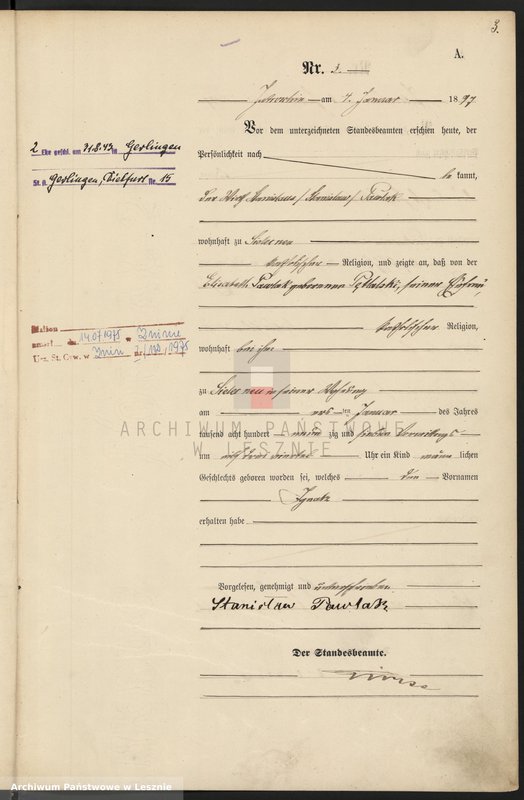 3.
A.
Nr. 3.
am 4. Januar 1897
Vor dem unterzeichneten Standesbeamten erschien heute, der
Persönlichkeit nach be kannt,
der Wirth Stanislaus / Stanislaw / Pawlak
wohnhaft zu
katholischer Religion, und zeigte an, daß von der
Elisabeth Pawlak geborenen seiner Ehefrau,
katholischer Religion,
wohnhaft bei ihm
zu in seiner Wohnung
am ten Januar des Jahres
tausend acht hundert neun zig und sieben Vormittags
um Uhr ein Kind männ lichen
Geschlechts geboren worden sei, welches den Vornamen
Ignatz
erhalten habe
Vorgelesen, genehmigt und unterschrieben
Stanisław Pawlak
Der Standesbeamte.
2 Ehe geschl. am 31.8.43 in Gerlingen
St. A. Gerlingen, Nr. 15
14.07.1975 w Żninie
U-z. St. Cyw. w Żnin nr. 1975
ARCHIWUM PAŃSTWOWE
W LESZNIE
Archiwum Państwowe w Lesznie